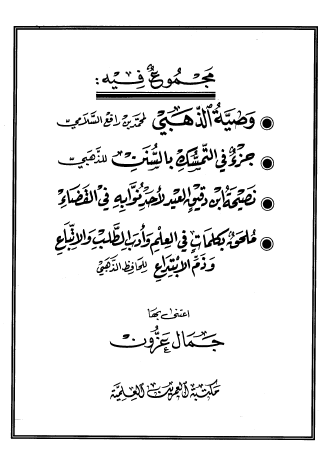 مجموع فيه:
وصية الذهبي لمحمد بن رافع السلامي
جزء في التمسك بالسنن للذهبي
نصيحة ابن دقيق العيد لأحد نوابه في القضاء
ملحق بكلمات في العلم وأدب الطلب والاتباع
وذم الابتداع للحافظ الذهبي
اعتنى بها
جمال عزون
مكتبة العمرين العلمية